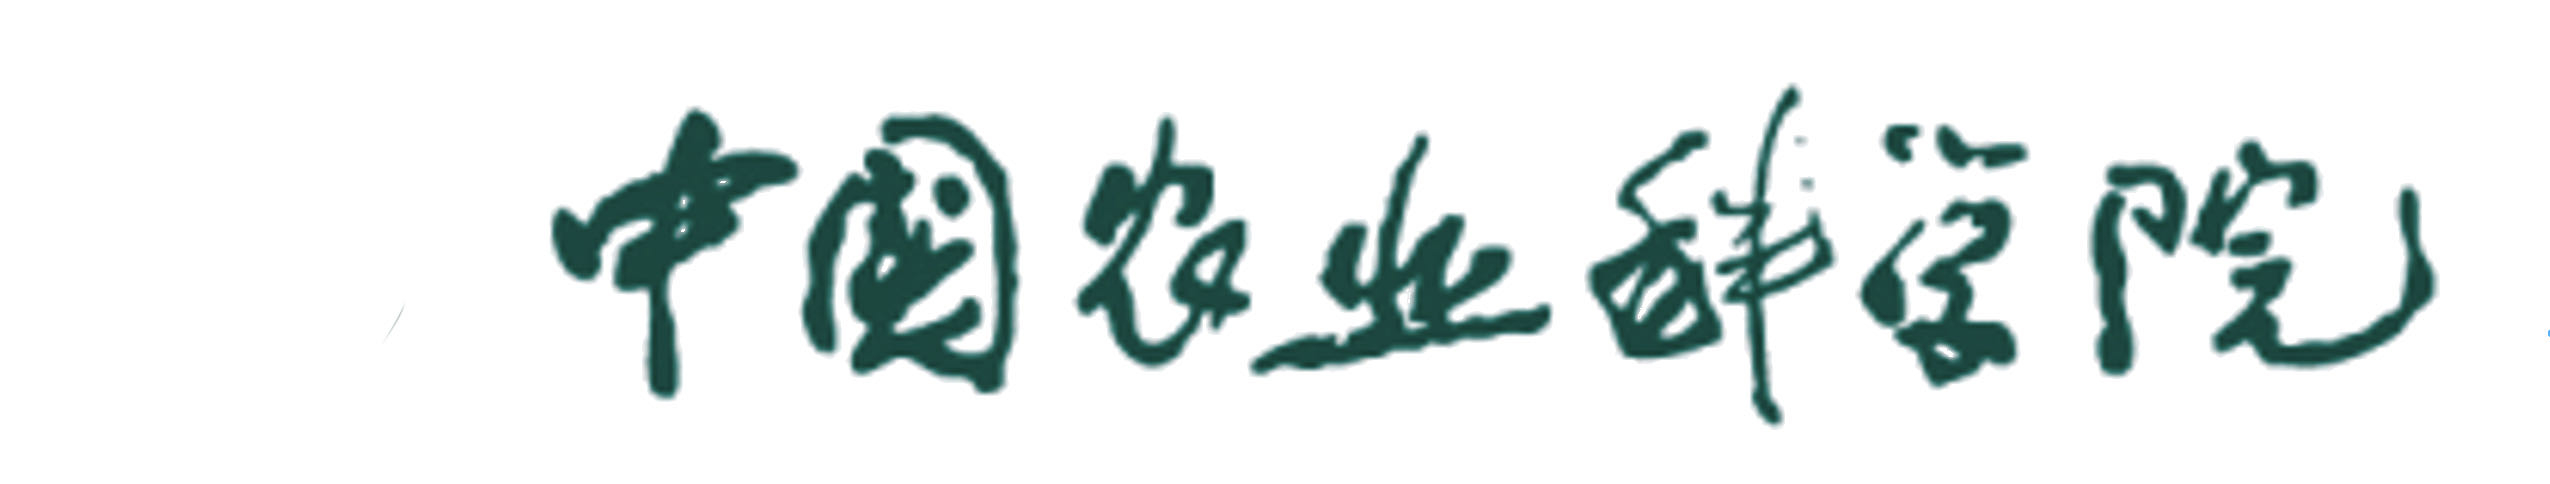 中國农业科学院